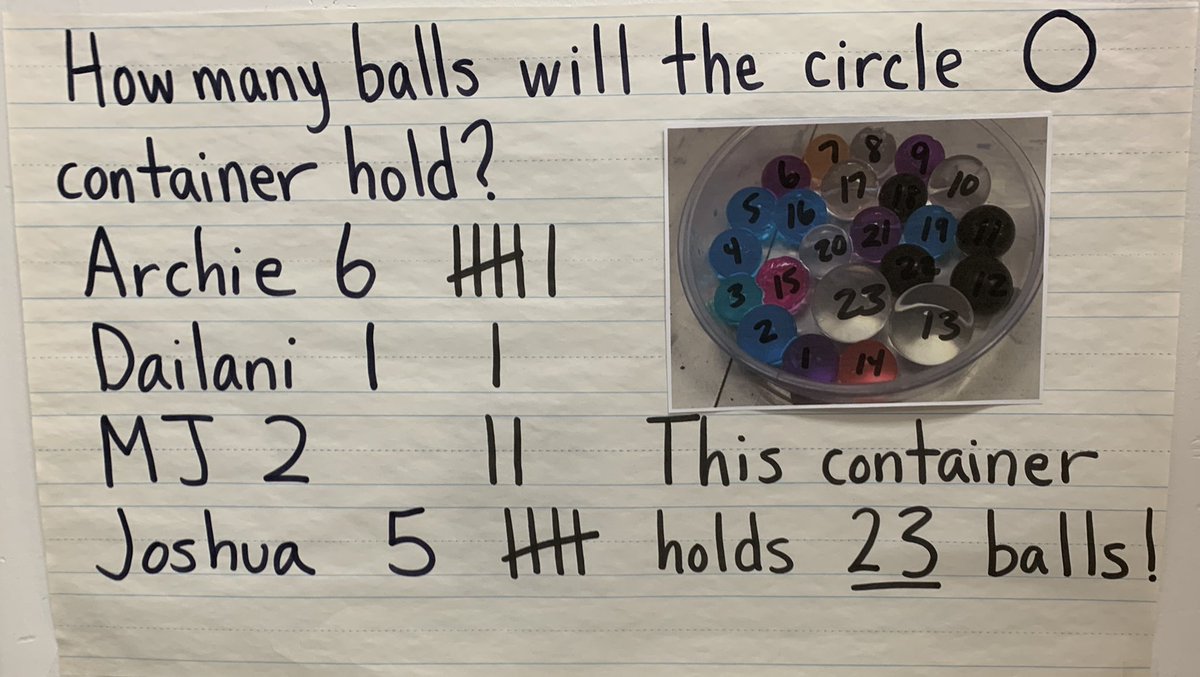 How many balls will the circle
container hold?
Archie 6
Dailani 1
MJ 2
Joshua 5
This container
holds 23 balls!
7 8 9
6 17 18 10
5 16 21 19 11
4 20 12
3 15 23 13
2
1 14